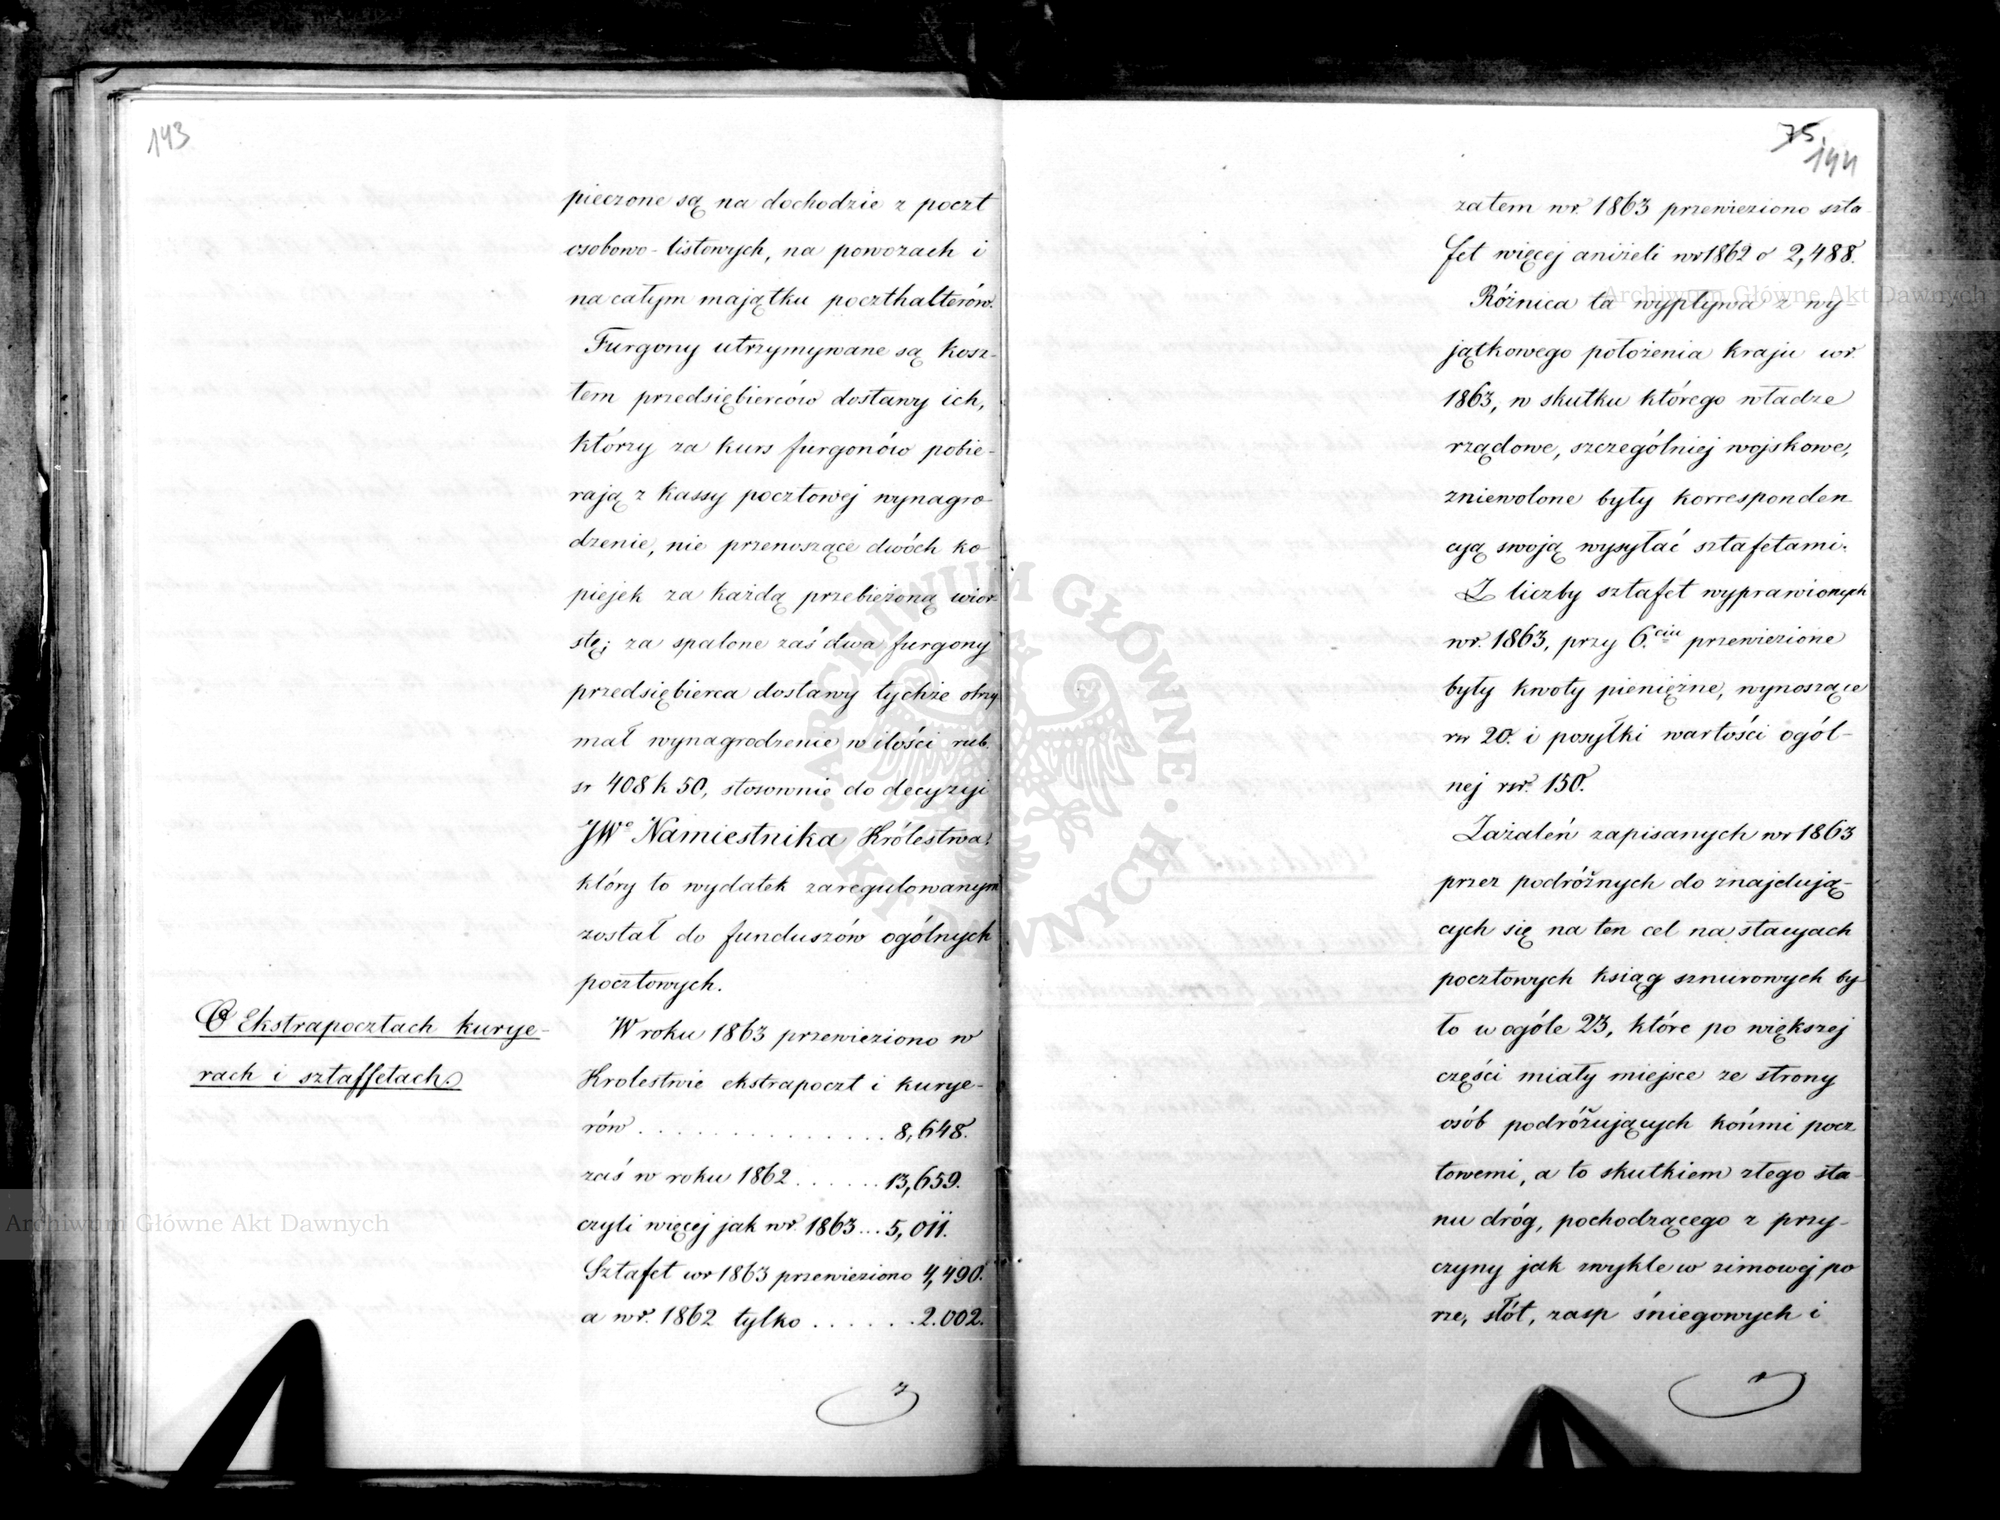 143
pieczone są na dochodzie z poczt
osobowo-listowych, na powozach i
na całym majątku poczthalterów.
Furgony utrzymywane są kosz-
tem przedsiębierców dostawy ich,
którzy za kurs furgonów pobie-
rają z kassy pocztowej wynagro-
dzenie, nie przenoszące dwóch ko-
piejek za każdą przebieżoną wior-
stę; za spalone zaś dwa furgony
przedsiębierca dostawy tychże otrzy
mał wynagrodzenie w ilości rub.
sr 408 k 50, stosownie do decyzyi
JWo Namiestnika Królestwa,
który to wydatek zaregulowanym
został do funduszów ogólnych
pocztowych.
O Ekstrapocztach kurye-
rach i sztaffetach.
W roku 1863 przewieziono w
Krolestwie ekstrapoczt i kurye-
rów . . . . . . . . . . . . . . 8,648.
zaś w roku 1862 . . . . . . 13,659.
czyli więcej jak w r. 1863 ... 5,011.
Sztafet w r 1863 przewieziono 4,490.
a w r. 1862 tylko . . . . . . 2.002.
75.
144
zatem w r. 1863 przewieziono szta-
fet więcej aniżeli w r 1862 o 2,488.
Różnica ta wypływa z wy-
jątkowego położenia kraju w r.
1863, w skutku którego władze
rządowe, szczególniej wojskowe,
zniewolone były korresponden
cyą swoją wysyłać sztafetami.
Z liczby sztafet wyprawionych
w r. 1863, przy 6.ciu przewiezione
były kwoty pieniężne, wynoszące
rsr 20. i posyłki wartości ogól-
nej rsr. 150.
Zażaleń zapisanych w r 1863
przez podróżnych do znajdują-
cych się na ten cel na stacyach
pocztowych ksiąg sznurowych by
ło w ogóle 23, które po większej
części miały miejsce ze strony
osób podróżujących końmi pocz
towemi, a to skutkiem złego sta-
nu dróg, pochodzącego z przy-
czyny jak zwykle w zimowej po
rze, słót, zasp śniegowych i
Archiwum Główne Akt Dawnych
Archiwum Główne Akt Dawnych
ARCHIWUM GŁÓWNE
AKT DAWNYCH